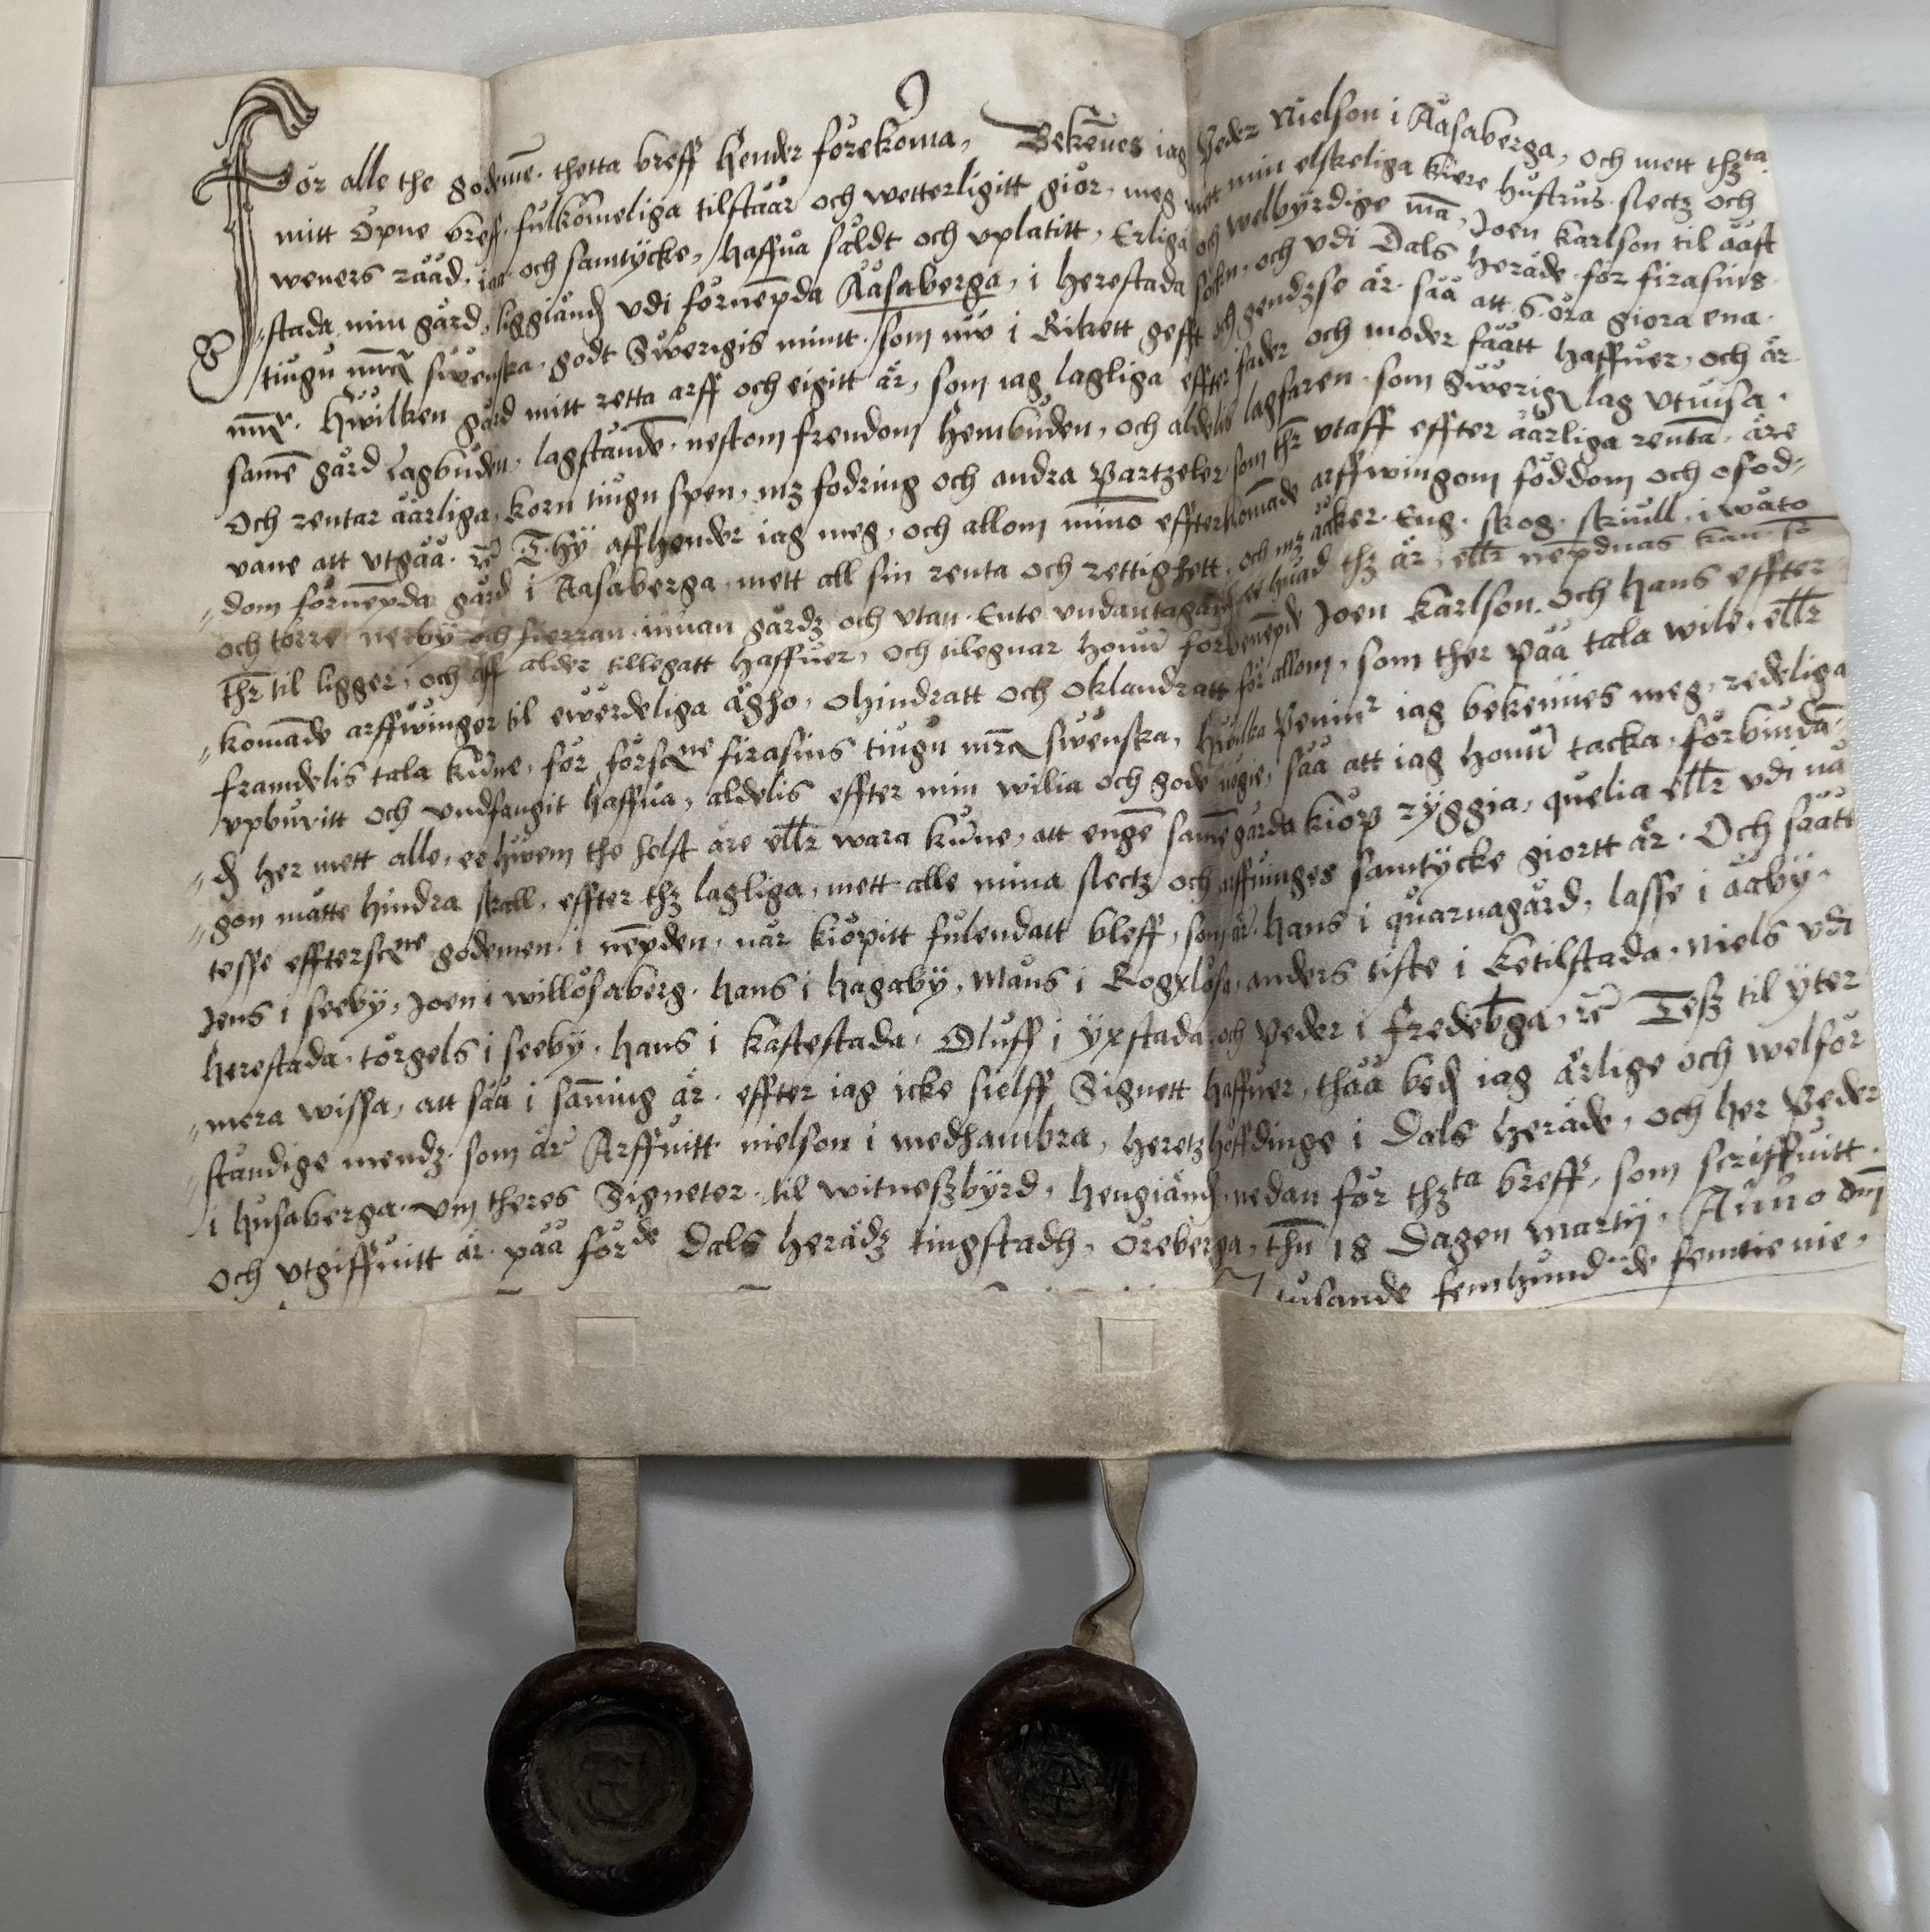 För alle the godemē. thetta breff hender förekōma, Bekēnes iag Peder Nielson i Aasaberga, och mett thzta
mitt öpne breff, fulkōmeliga tilstäär och wetterligitt giör, meg mett min elskeliga kiere hustrus slectz och
weners rååd, iaa och samtÿcke, haffua såldt och vplatitt, Erliga och welbÿrdige mā, Joen Karlson til ååst
"stada, min gård, liggiändh vdi förnēpda Aasaberga, i herestada sokn, och vdi Dals heräde för firasins
tiugu mrꝭ swenska, godt Swerigis mintt, som nw i Rikett gefft och gendzse är, såå att 8 öra giora ena
mrꝭ. Hwilken gård mitt retta arff och eigitt är, som iag lagliga effter fader och moder fåått haffuer, och är
samē gård Lagbuden, lagståndē, nestom frendom hembuden, och aldelis lagfaren, som Swerigꝭ lag vtuisa.
Och rentar åårliga, korn tiugu spen, mz fodring och andra Partzeler som thr vtaff effter åårliga rentā, äre
vane att vtgåå. rē Thÿ affhender iag meg, och allom minō effterkomāde arffwingom föddom och ofod"
"dom förnēpda gård i Aasaberga, mett all sin renta och rettighett, och mz åcker, Eng, skog, skiull, i wåto
och torre nerbÿ och fierran, innan gårdz och vtan, Ente vndantagandh ee huad thz är, ellr nēpdnas kan, sō
thr til ligger, och aff alder tillegatt haffuer, och tilegnar honū forbenēpde Joen Karlson, och hans effter
"komāde arffwinger til ewerdeliga ägho, Ohindratt och Oklandratt för allom, som ther påå tala wile, ellr
framdelis tala kūne, för förscꝛne firasins tiugu mrꝭ swenska, hwilka Peninr iag bekennes meg, redeliga
vpburitt och vndfangit haffua, aldelis effter min wilia och gode nögie, såå att iag honū tacka, förbinda
"dh her mett alle, ee hwem the helst äre ellr wara kūne, att engē samē gårda kiöp rÿggia, quelia ellr vdi nå
"gon måtte hindra skall, effter thz lagliga, mett alle mina slectz och arffuinges samtÿcke giortt är. Och såått
tesse effterscꝛne godemen i nēpden, när kiöpitt fulendatt bleff, som är. hans i quarnagård, lasse i ååbÿ,
Jens i seebÿ, Joen i willösaberg, hans i hagabÿ, Måns i Rogxlösa, anders tiste i Ketilstada, niels vdi
herestada, törgels i seebÿ, hans i kastestada, Oluff i ÿxstada och Peder i fredebꝛga, rē Tesz til ÿter
"mera wissa, att såå i sāning är, effter iag icke sielff Signett haffuer, thåå bedh iag ärlige och welför
"standige mendz, som är Arffuitt nielson i medhambra, heretzhöffdinge i Dals heräde, och her Peder
i husaberga, vm theres Signeter, til witneszbÿrd, hengiändh nedan för thzta breff, som scriffuitt
och vtgiffuitt är, påå förde Dals herädz tingstadh, öreberga, thn 18 Dagen martij, Anno dnj
tusande femhundrde femtie nie,